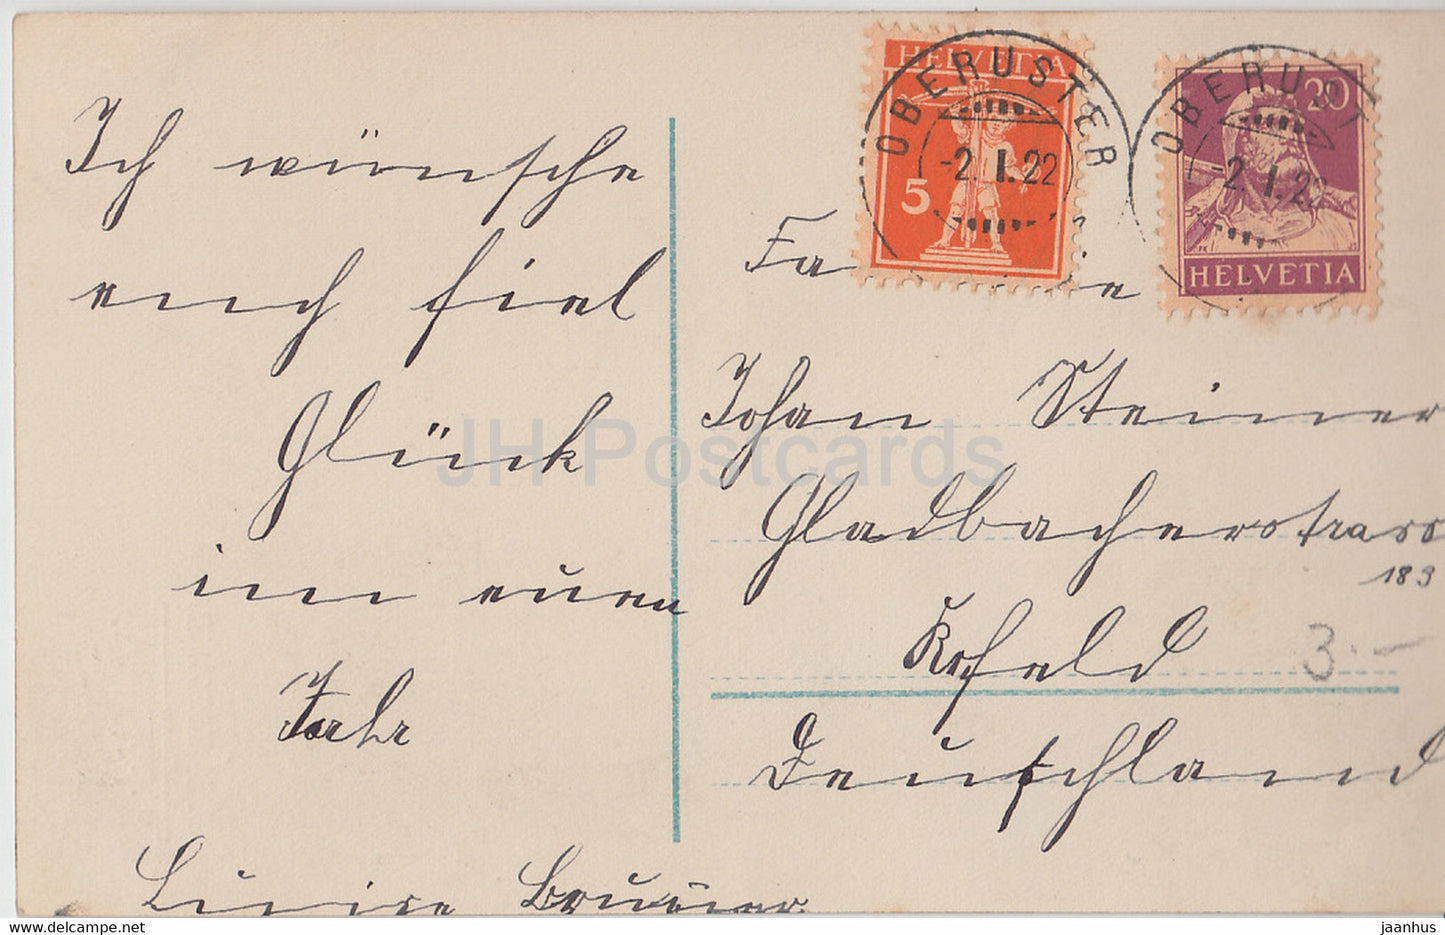 Ich wünsche
euch fiel
Glück
im euen
Jahr
HELVETIA
5
OBERUSTER
-2. I. 22
20
HELVETIA
OBERUST
-2. I. 22
Fa ie
Johan Steiner
Gladbacherstrass
189
Krefeld
3.-
Deutschland
JH Postcards
https://www.delcampe.net
jaanhus